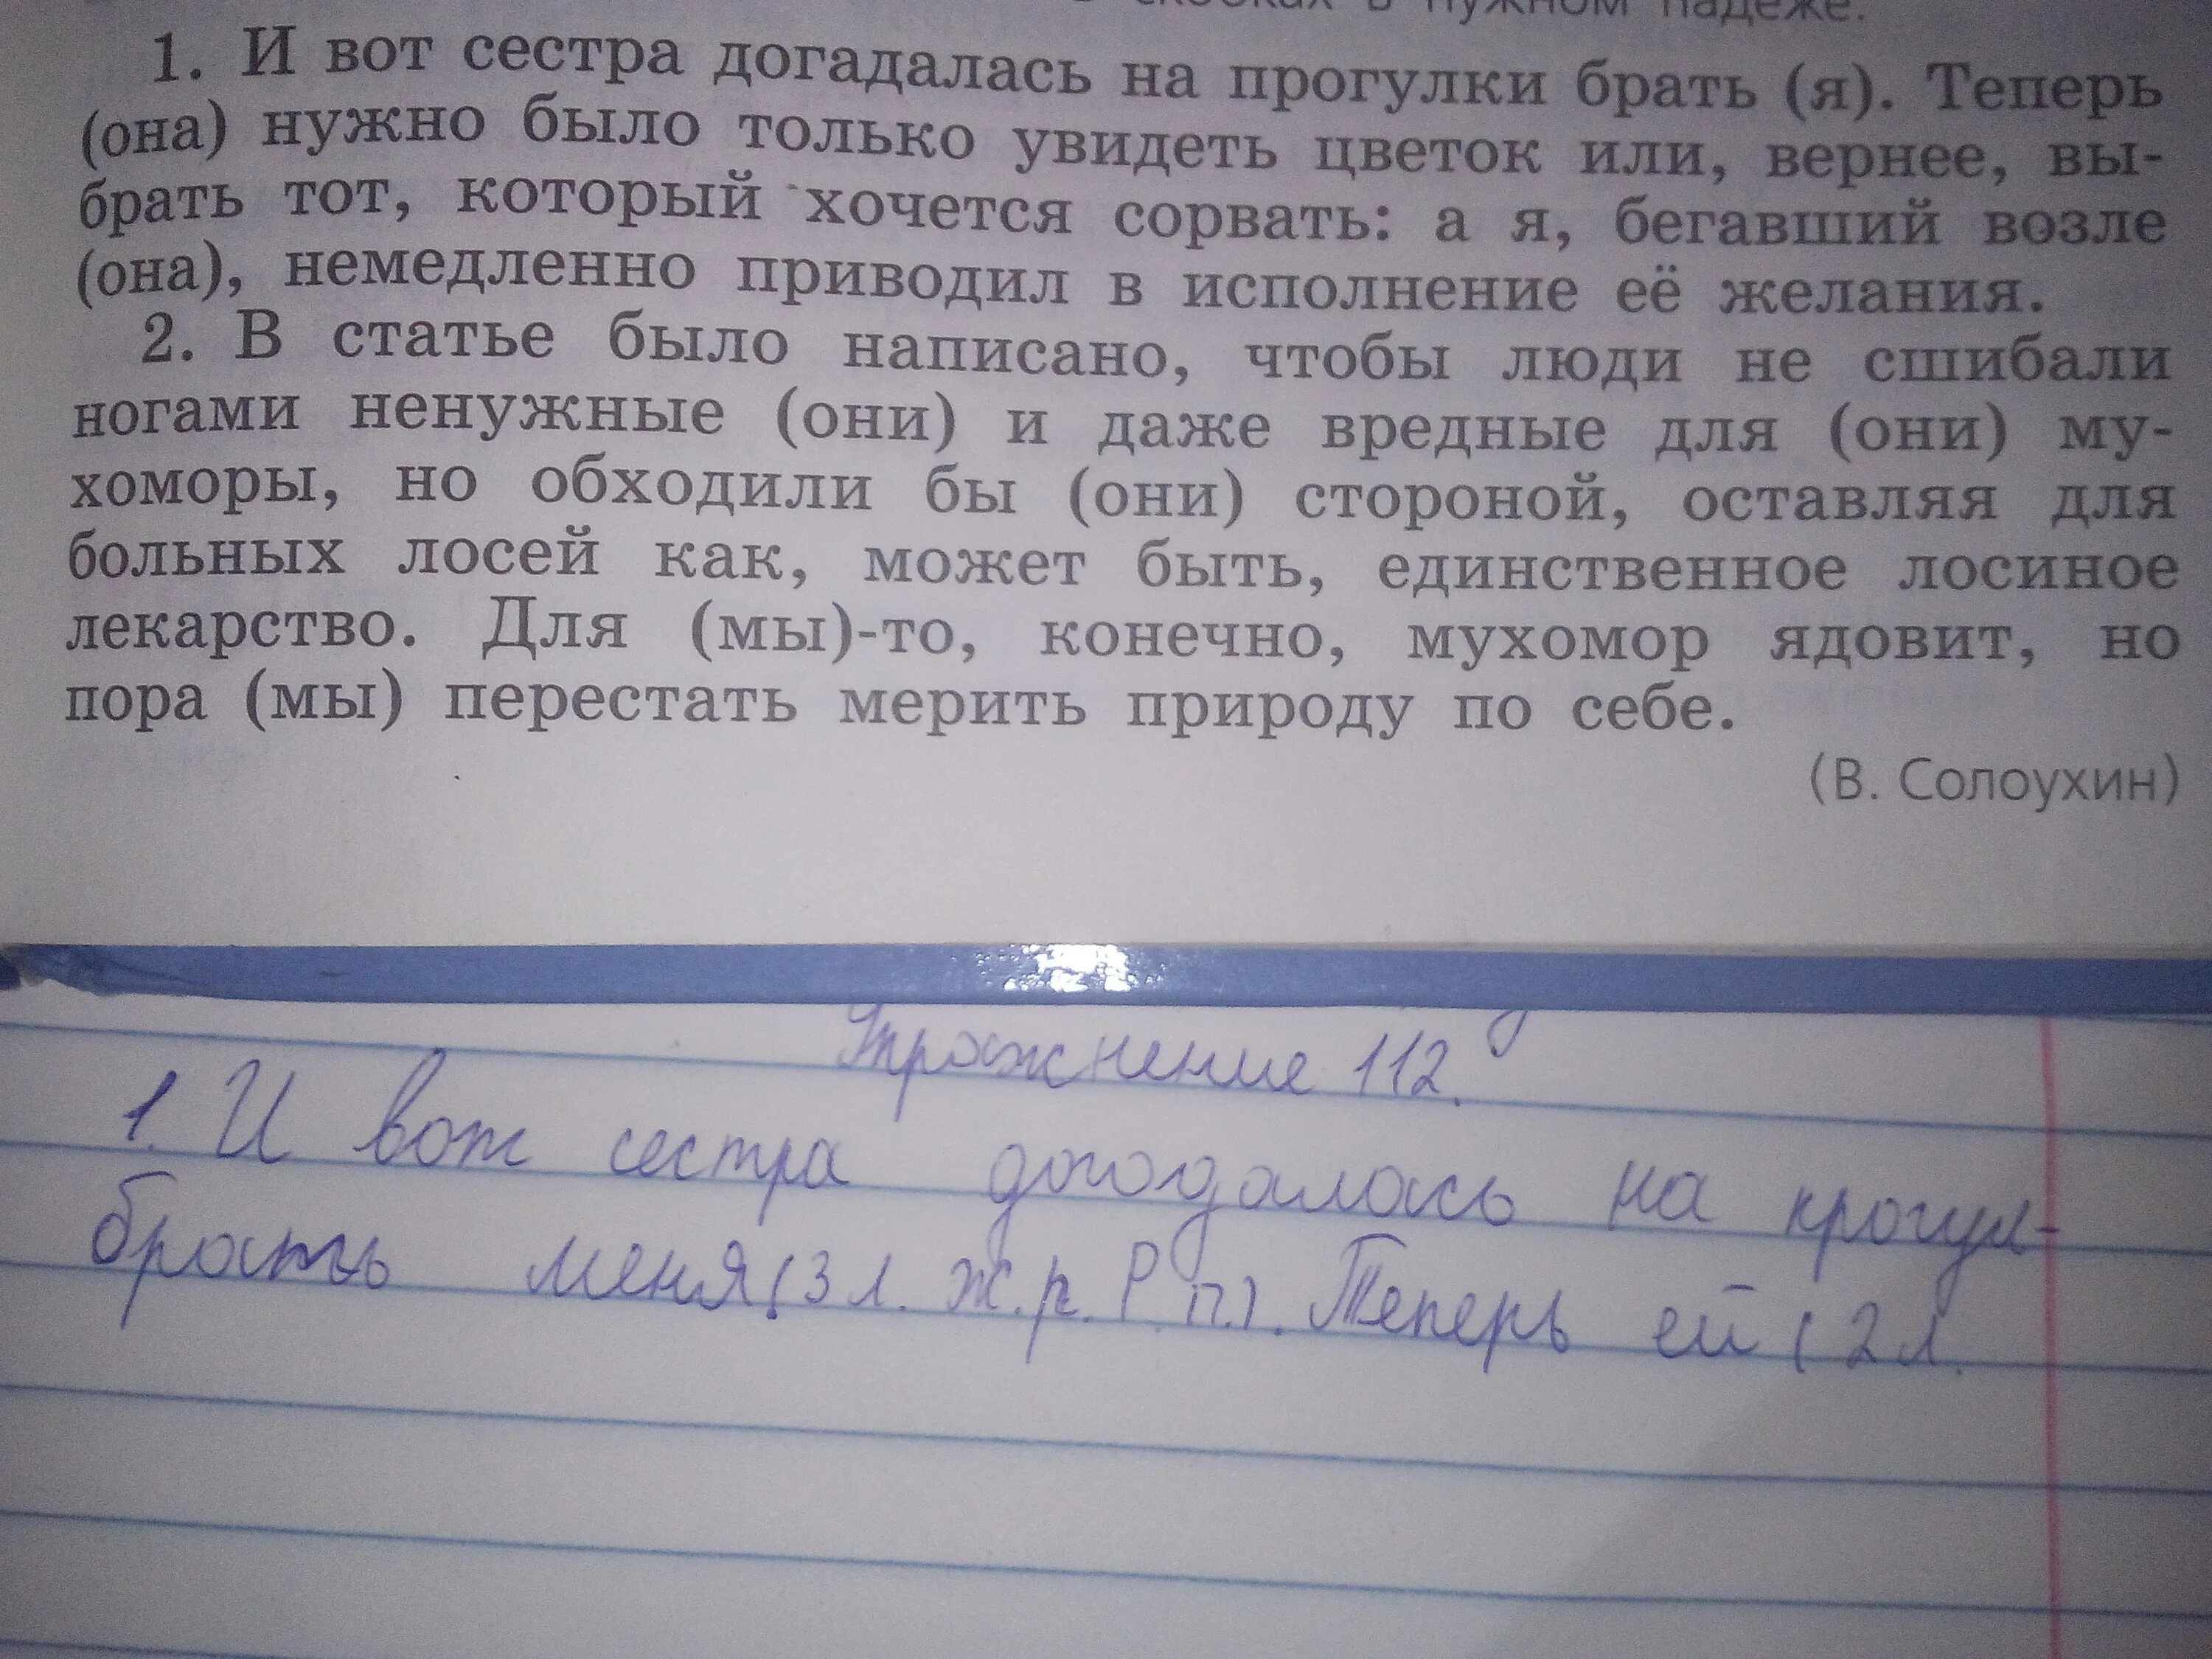 скобках в нужном падеже.
1. И вот сестра догадалась на прогулки брать (я). Теперь
(она) нужно было только увидеть цветок или, вернее, вы-
брать тот, который хочется сорвать: а я, бегавший возле
(она), немедленно приводил в исполнение её желания.
2. В статье было написано, чтобы люди не сшибали
ногами ненужные (они) и даже вредные для (они) му-
хоморы, но обходили бы (они) стороной, оставляя для
больных лосей как, может быть, единственное лосиное
лекарство. Для (мы)-то, конечно, мухомор ядовит, но
пора (мы) перестать мерить природу по себе.
(В. Солоухин)
Упражнение 112.
1. И вот сестра догадалась на прогул-
брать меня (3 л. ж.р. Р.п.). Теперь ей ( 2 л.